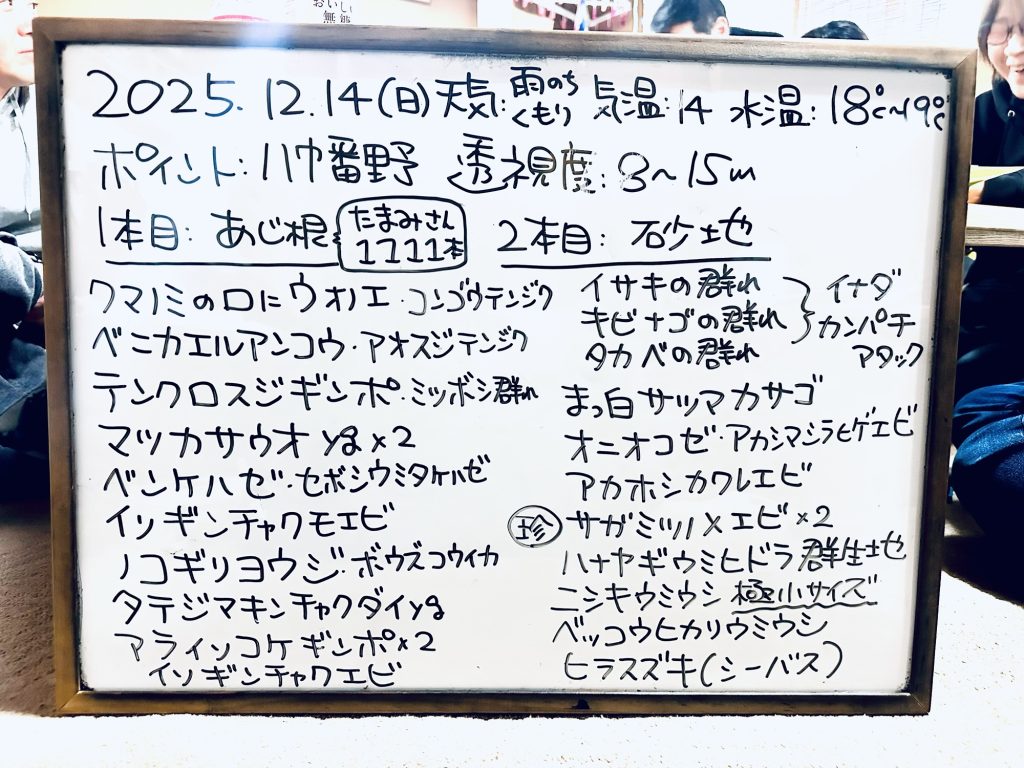 おいしい
無
2025. 12. 14(日) 天気: 雨のちくもり 気温: 14 水温: 18℃~19℃
ポイント: 八巾番野 透視度: 8~15m
1本目: あじ根 たまみさん 1711本
2本目: 砂地
クマノミの口にウオノエ・コンゴウテンジク
ベニカエルアンコウ・アオスジテンジク
テンクロスジギンポ・ミツボシ群れ
マツカサウオyg×2
ベンケイハゼ・セボシウミタケハゼ
イソギンチャクモエビ
ノコギリヨウジ・ボウズコウイカ
タテジマキンチャクダイyg
アライソコケギンポ×2
イソギンチャクエビ
イサキの群れ
キビナゴの群れ
タカベの群れ
イナダ
カンパチ
アタック
まっ白サツマカサゴ
オニオコゼ・アカシマシラヒゲエビ
アカホシカクレエビ
珍 サガミツノメエビ×2
ハナヤギウミヒドラ群生地
ニシキウミウシ 極小サイズ
ベッコウヒカリウミウシ
ヒラスズキ(シーバス)